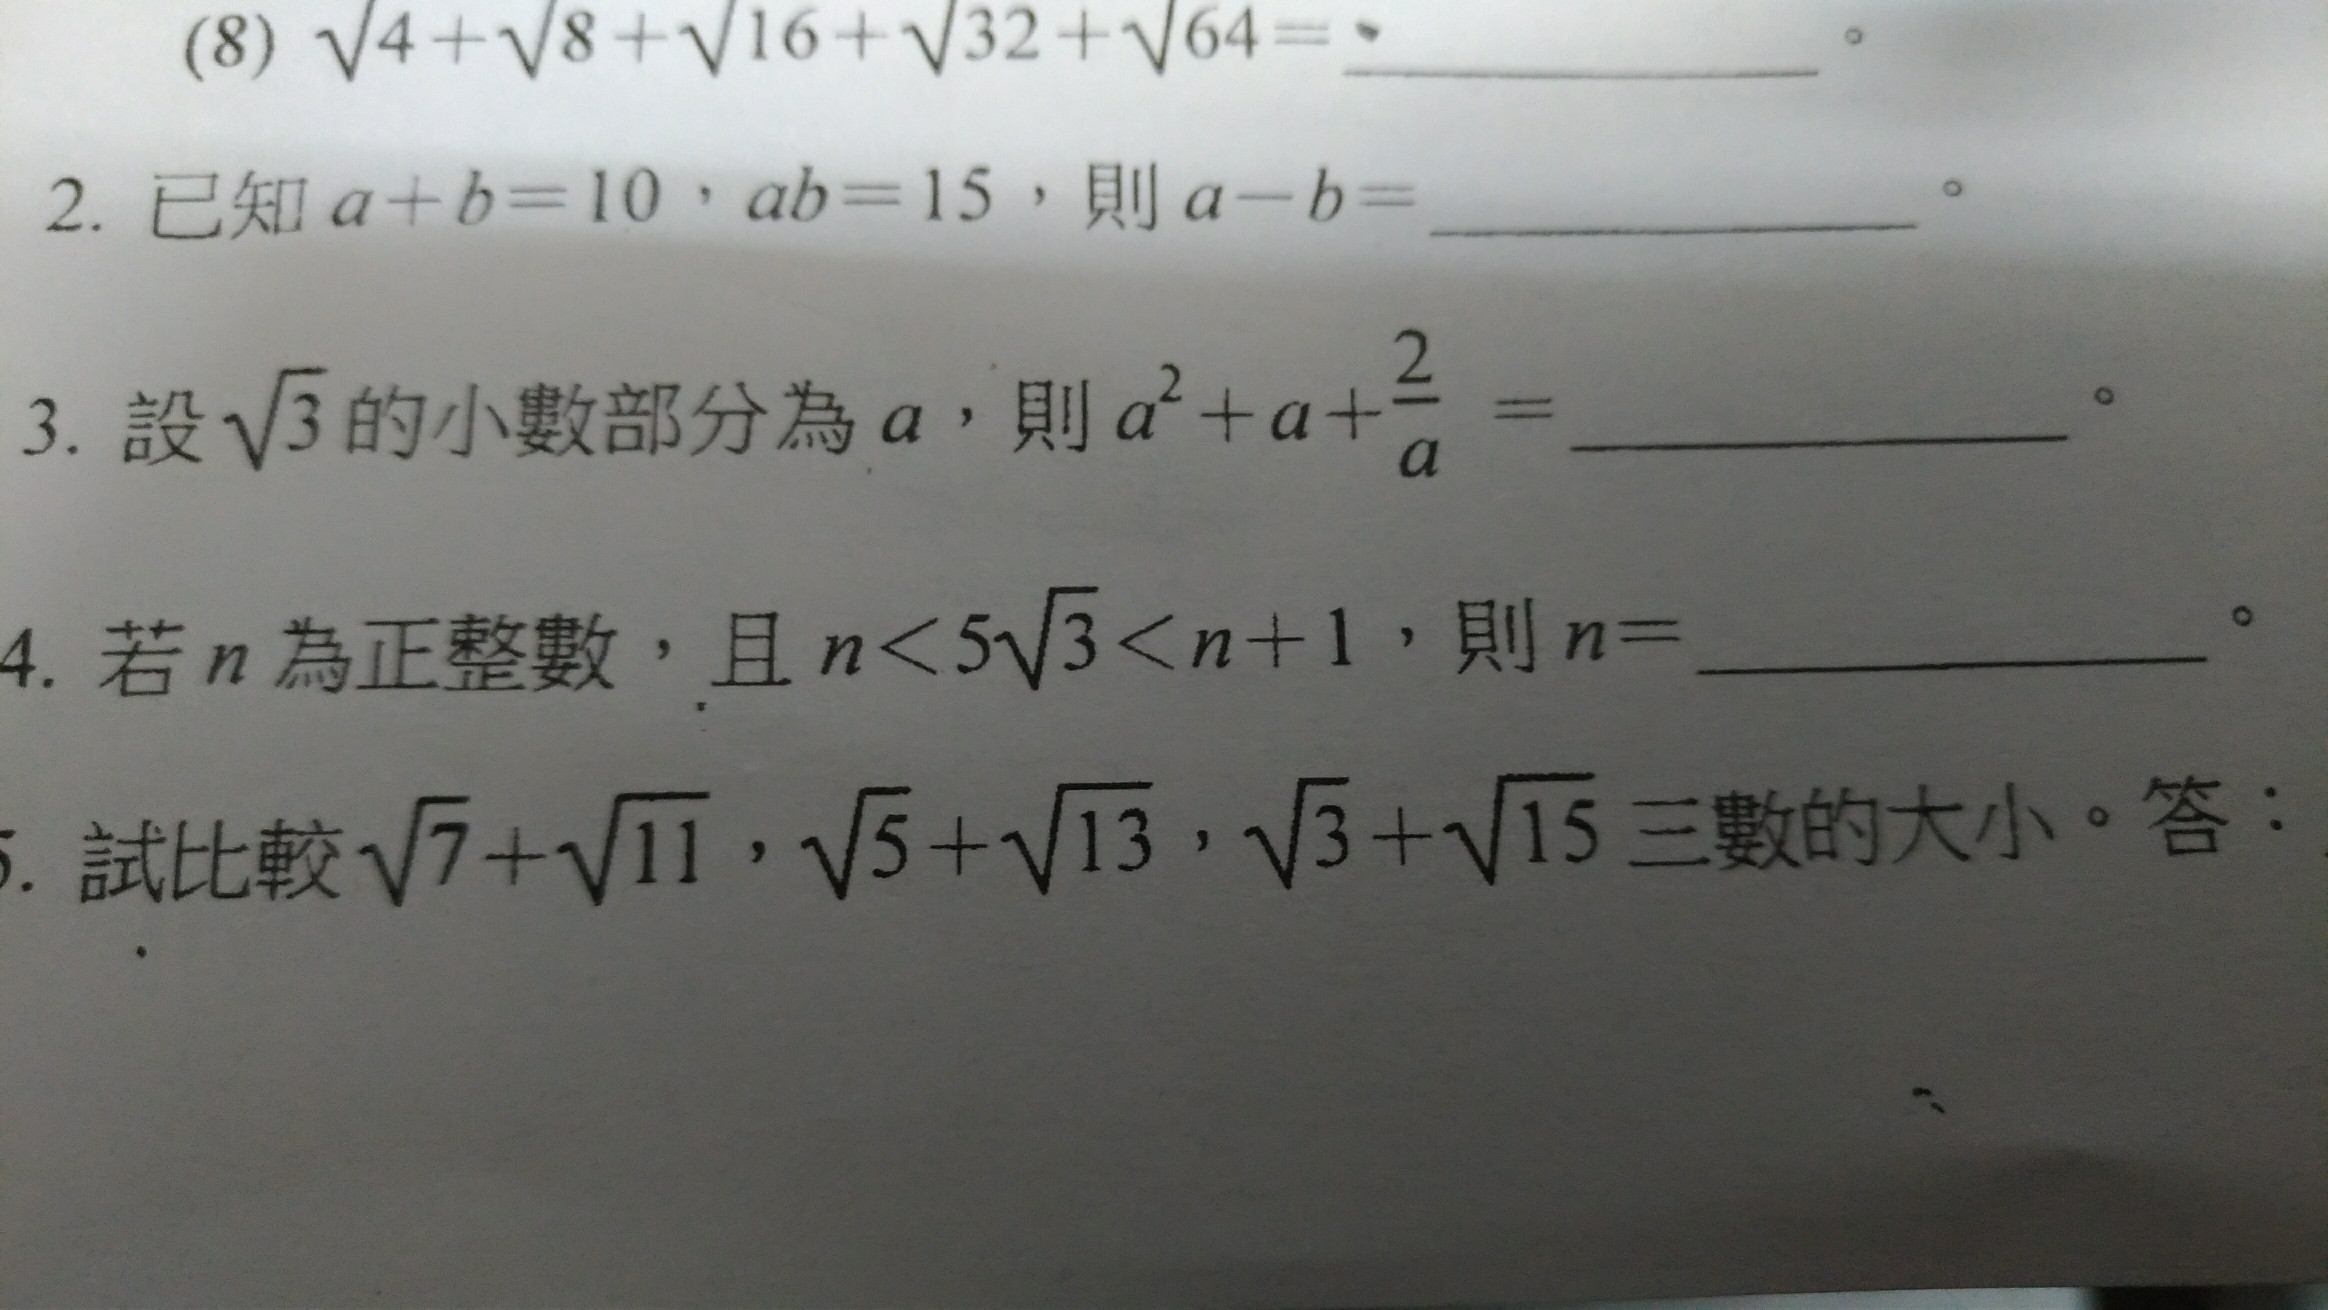 (8) √4+√8+√16+√32+√64=________。
2. 已知 a+b=10，ab=15，則 a−b=________。
3. 設√3的小數部分為 a，則 a²+a+2/a =________。
4. 若 n 為正整數，且 n<5√3<n+1，則 n=________。
5. 試比較√7+√11，√5+√13，√3+√15 三數的大小。答：